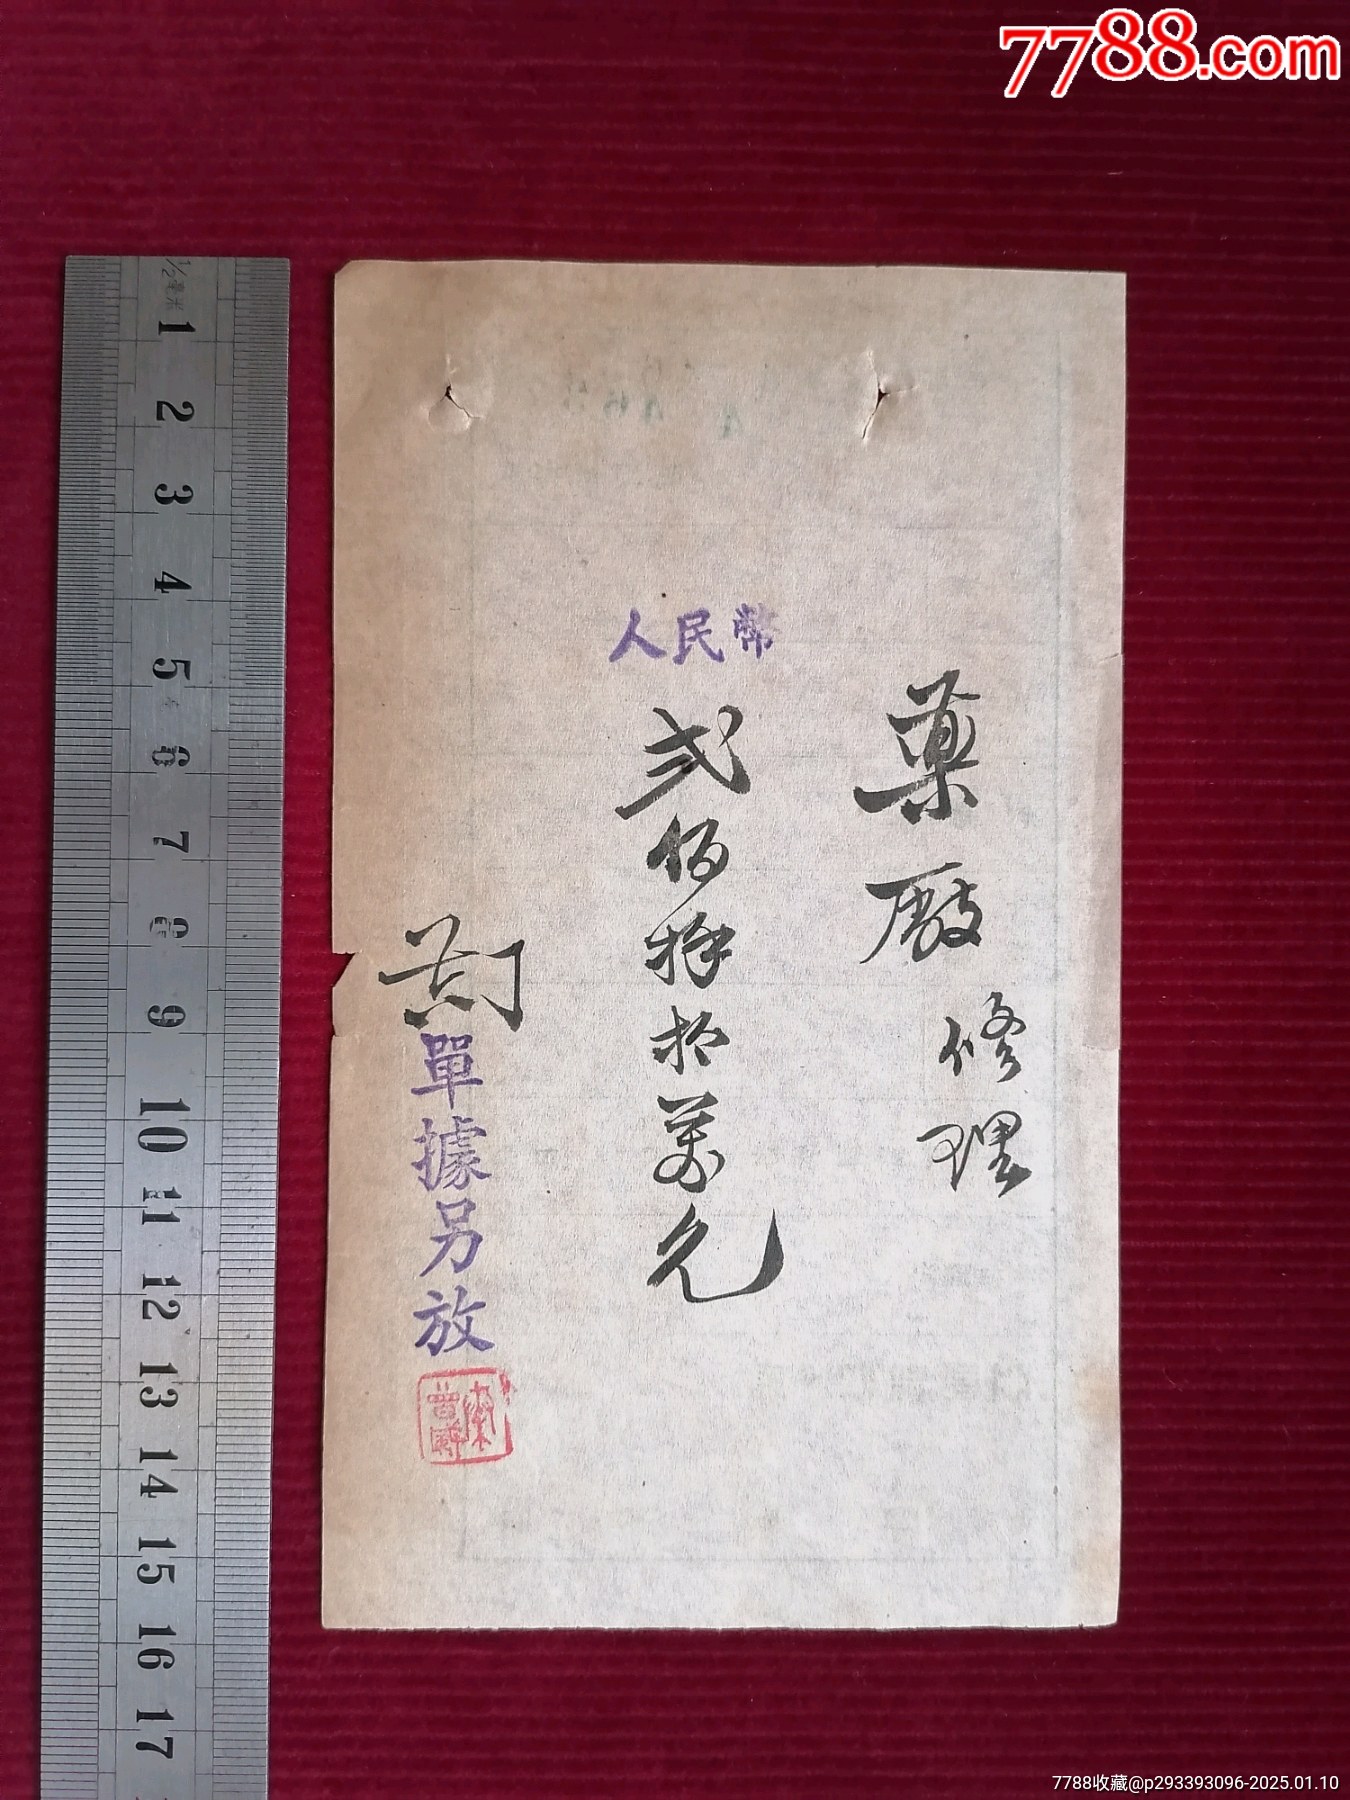 7788.com
藥廠修理
人民幣
弍佰拾萬元
單據另放
1/2毫米
1
2
3
4
5
6
7
8
9
10
11
12
13
14
15
16
17
7788收藏@p293393096-2025.01.10